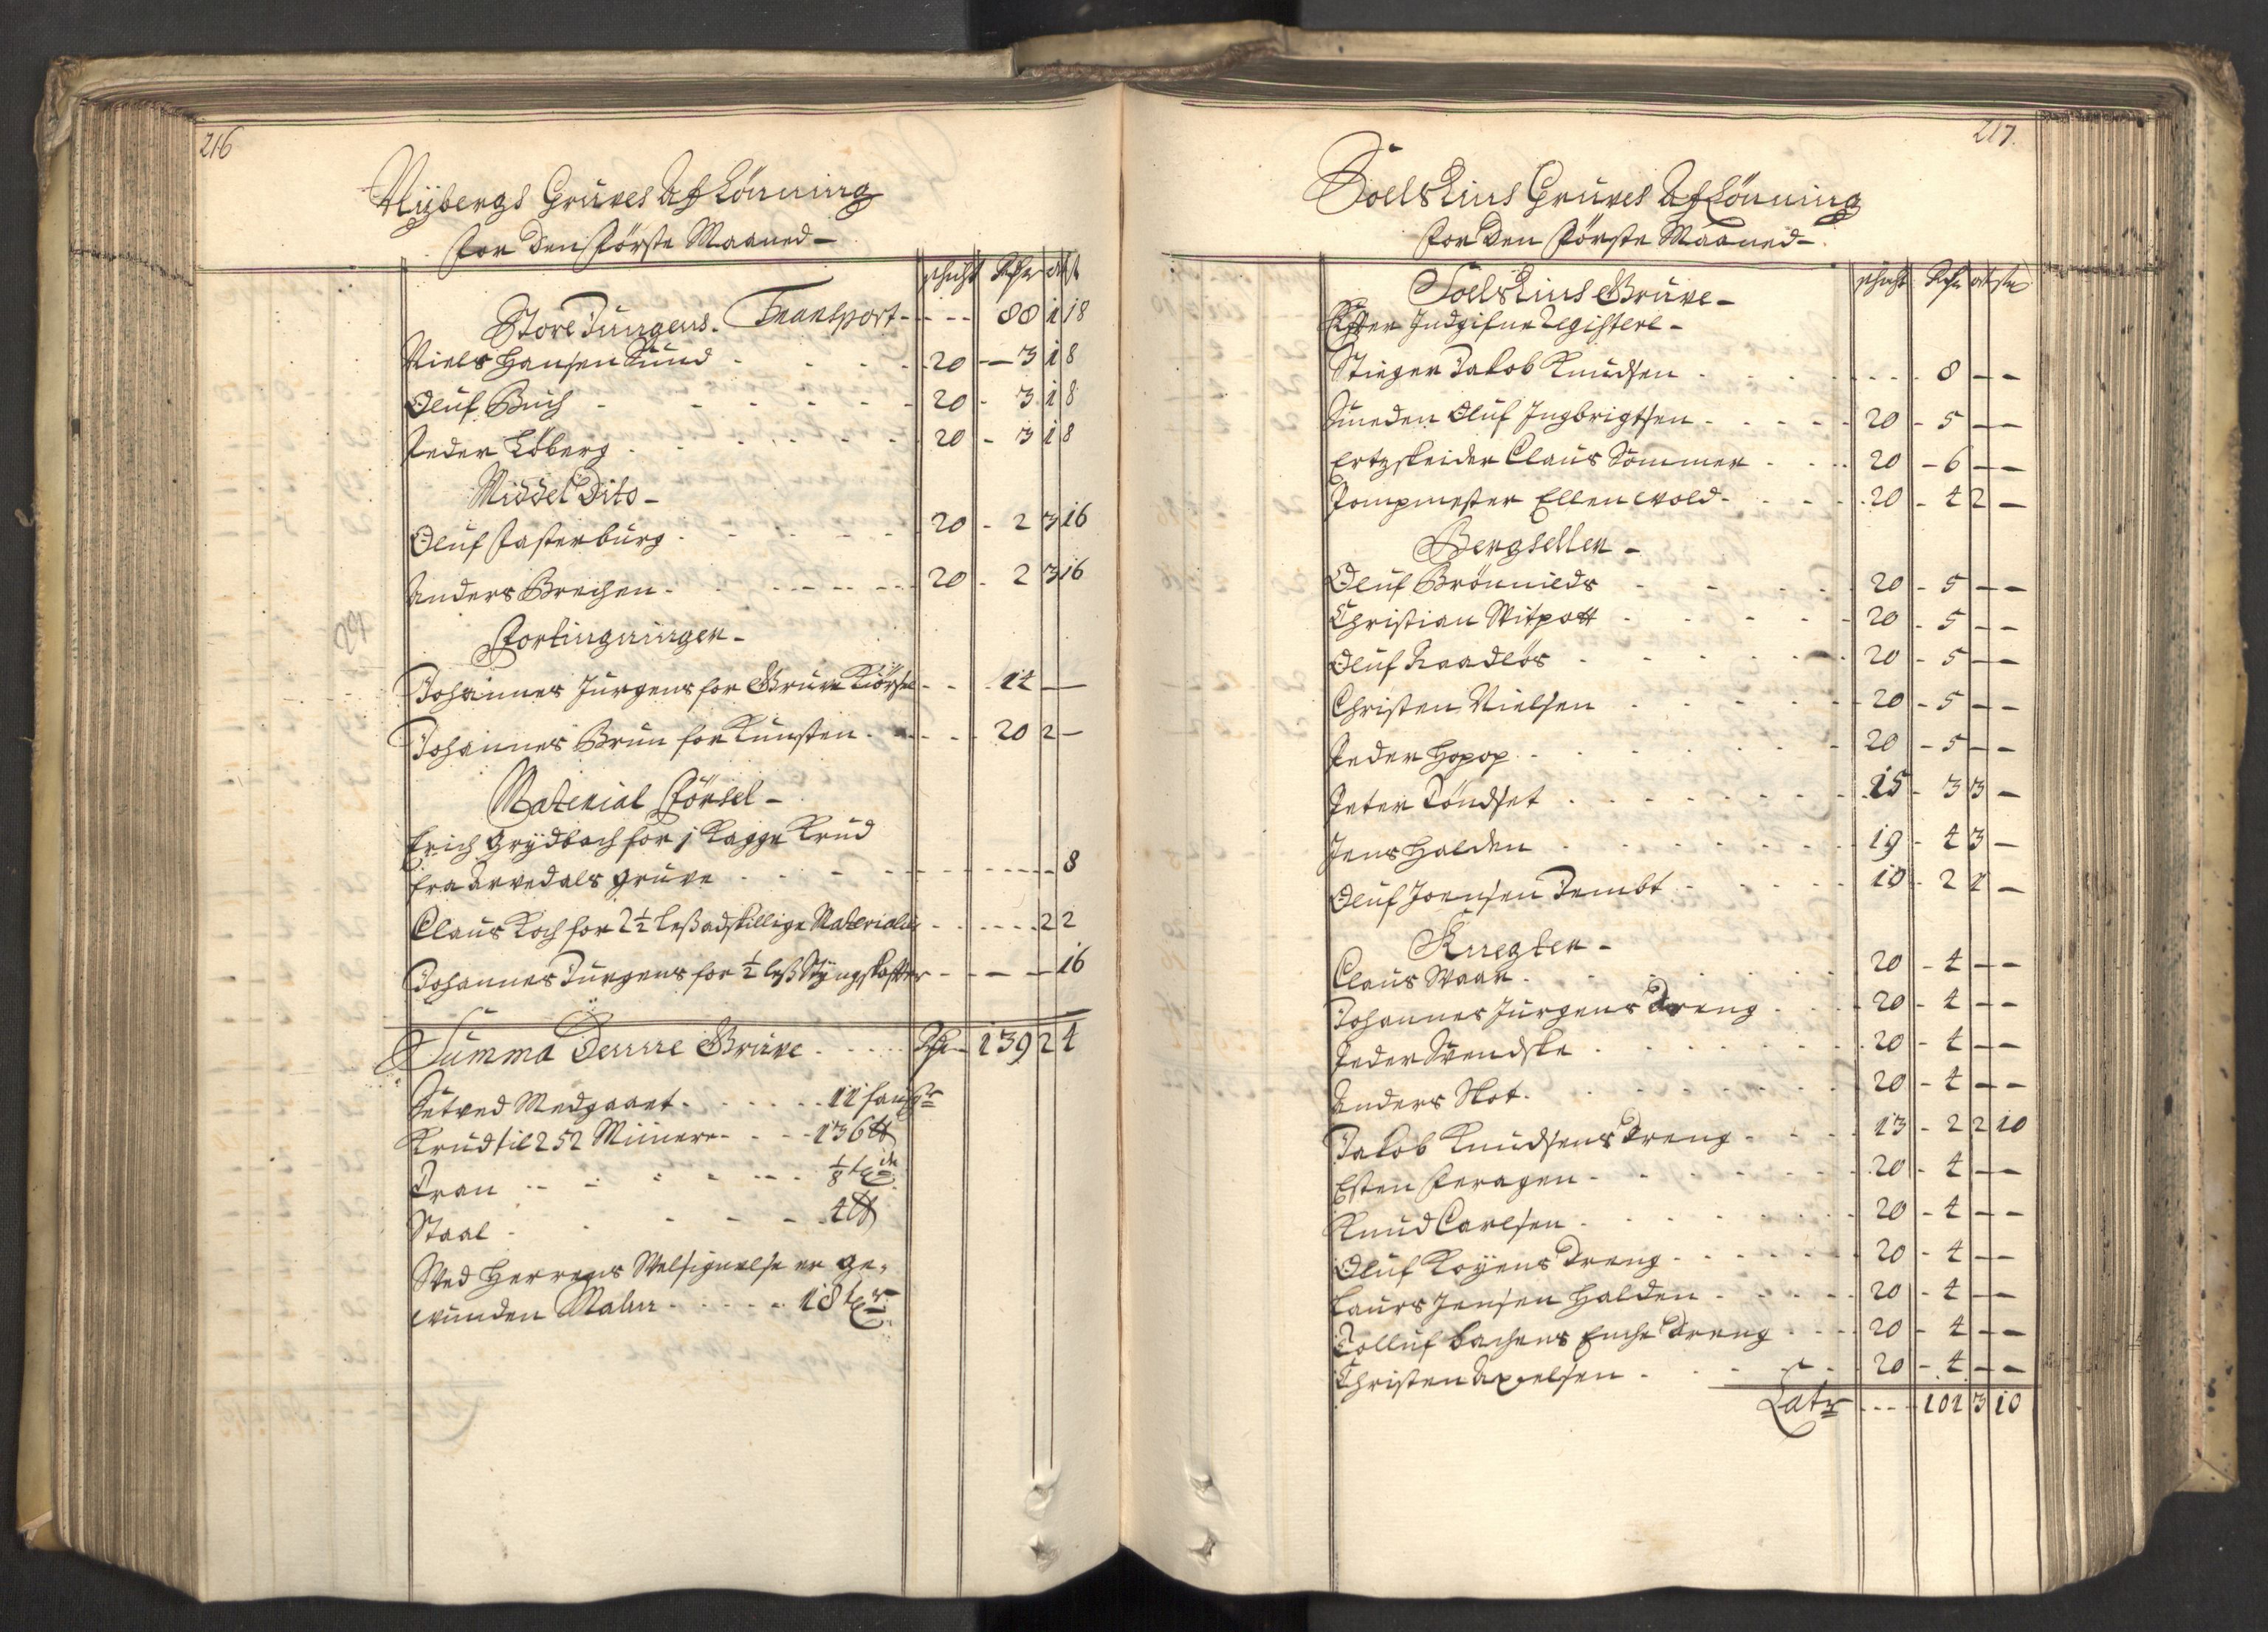 216
Nybergs Gruves Aflönning
for den förste Maaned -
schicht Rdr ort s
Store Jungens. Transport - - - - 88 1 18
Niels Hansen Lund - - 20 - 3 1 8
Oluf Buch - - 20 - 3 1 8
Peder Löberg - - 20 - 3 1 8
Middel Dito -
Oluf Pasterburg - - 20 - 2 3 16
Anders Breihen - - 20 - 2 3 16
Fortingninger -
Johannes Jürgens for Gruve Kiörsel - - 14 —
Johannes Brun for Kunsten - - 20 2 —
Material Försel -
Erich Grydbach for 1 Kagge Krud
fra Arvedals gruve - - - 8
Claus Koch for 2½ less adskillige Materialier - - 2 2
Johannes Jürgens for ½ less - - - 16
Summa Denne Gruve - - Rdr 139 2 4
Setved Medgaaet - - 11 fauger
Krud til 252 Minere - - 136 ℔
Tran - - ⅛ tde
Staal - - 4 ℔
Ved Herrens Velsignelse er ge-
wunden Malm - - 18 tr
217.
Soelskins Gruves Aflönning
for den förste Maaned -
schicht Rdr ort s
Soelskins Gruve -
Efter Indgifne Registere -
Stieger Jakob Knudsen - - - 8 — —
Smeden Oluf Ingbrigtsen - - 20 - 5 — —
Ertzskeider Claus Sommer - - 20 - 6 — —
Pompmester Ellen wold - - 20 - 4 2 —
Bergseller -
Oluf Brönnilds - - 20 - 5 — —
Christian Witpott - - 20 - 5 — —
Oluf Raadlös - - 20 - 5 — —
Christen Nielsen - - 20 - 5 — —
Peder Hopop - - 20 - 5 — —
Peter Töndset - - 15 - 3 3 —
Jens Halden - - 19 - 4 3 —
Oluf Joensen Tembt - - 10 - 2 2 —
Knegter -
Claus Waar - - 20 - 4 — —
Johannes Jürgens dreng - - 20 - 4 — —
Peder Svendske - - 20 - 4 — —
Anders Skot - - 20 - 4 — —
Jakob Knudsens dreng - - 13 - 2 2 10
Esten Feragen - - 20 - 4 — —
Knud Carlsen - - 20 - 4 — —
Oluf Koyens dreng - - 20 - 4 — —
Laurs Jensen Halden - - 20 - 4 — —
Tolluf Bachens Enche dreng - - 20 - 4 — —
Christen Axelsen - - 20 - 4 — —
Latr - - - 101 3 10